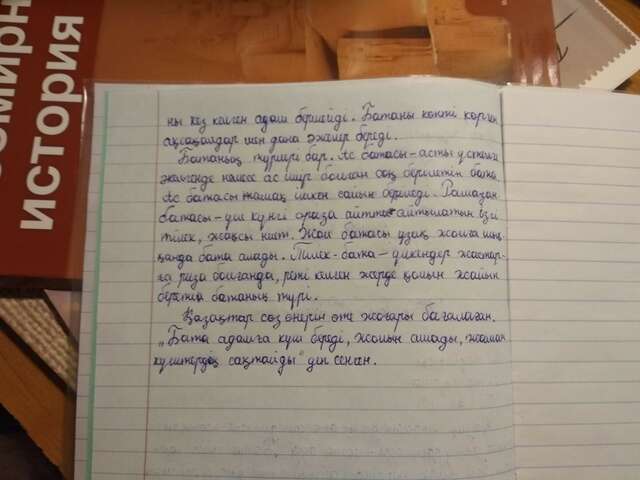 ОМИРН
ИСТОРИЯ
ны кез келген адам бермейді. Батаны көпті көрген
ақсақалдар мен дана әжелер береді.
Батаның түрлері бар. Ас батасы – асты үстелге
жайғанда немесе ас ішіп болған соң берілетін бата.
Ас батасы тамақ ішкен сайын беріледі. Рамазан
батасы – үш күнгі ораза айтты айтылатын ізгі
тілек, жақсы ниет. Жол батасы ұзақ жолға шық-
қанда бата алады. Тілек-бата – үлкендер жастар-
ға риза болғанда, реті келген жерде қолын жайып
беретін батаның түрі.
Қазақтар сөз өнерін өте жоғары бағалаған.
„Бата адамға күш береді, жолын ашады, жаман
күштерден сақтайды" деп сенген.